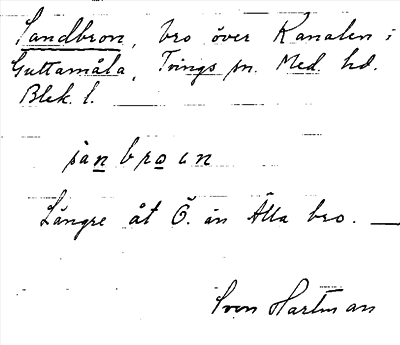 Sandbron, bro över Kanalen i
Guttamåla, Tvings sn. Med. hd.
Blek. l.
sànbroın
Längre åt Ö. än Älla bro. —
Sven Hartman